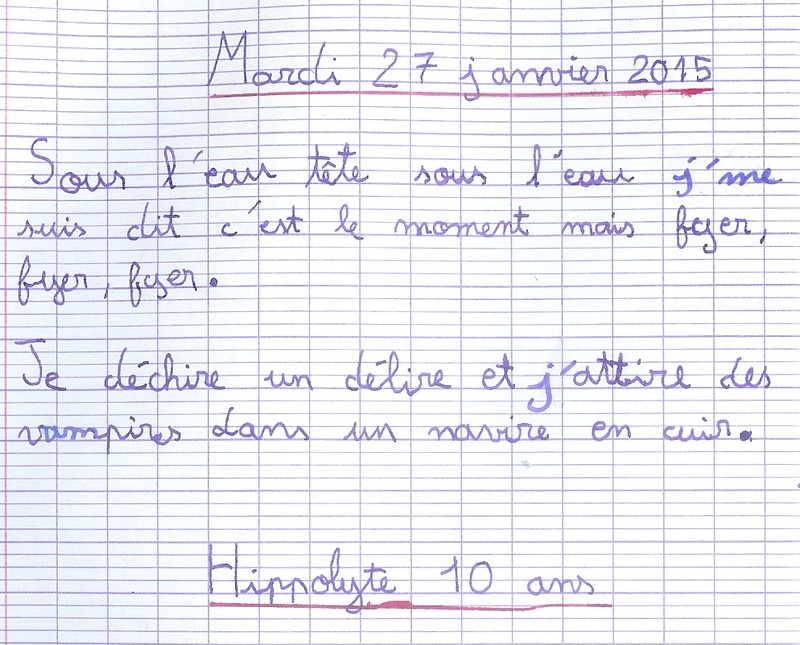 Mardi 27 janvier 2015
Sous l'eau tête sous l'eau j'me
suis dit c'est le moment mais fyer,
fyer, fyer.
Je déchire un délire et j'attire des
vampires dans un navire en cuir.
Hippolyte 10 ans